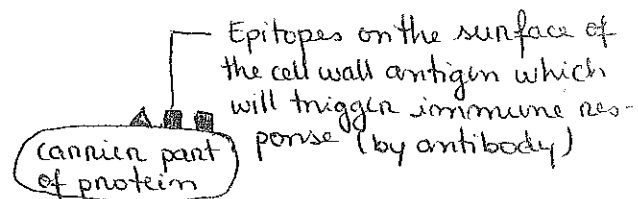 Epitopes on the surface of
the cell wall antigen which
will trigger immune res-
ponse (by antibody)
carrier part
of protein